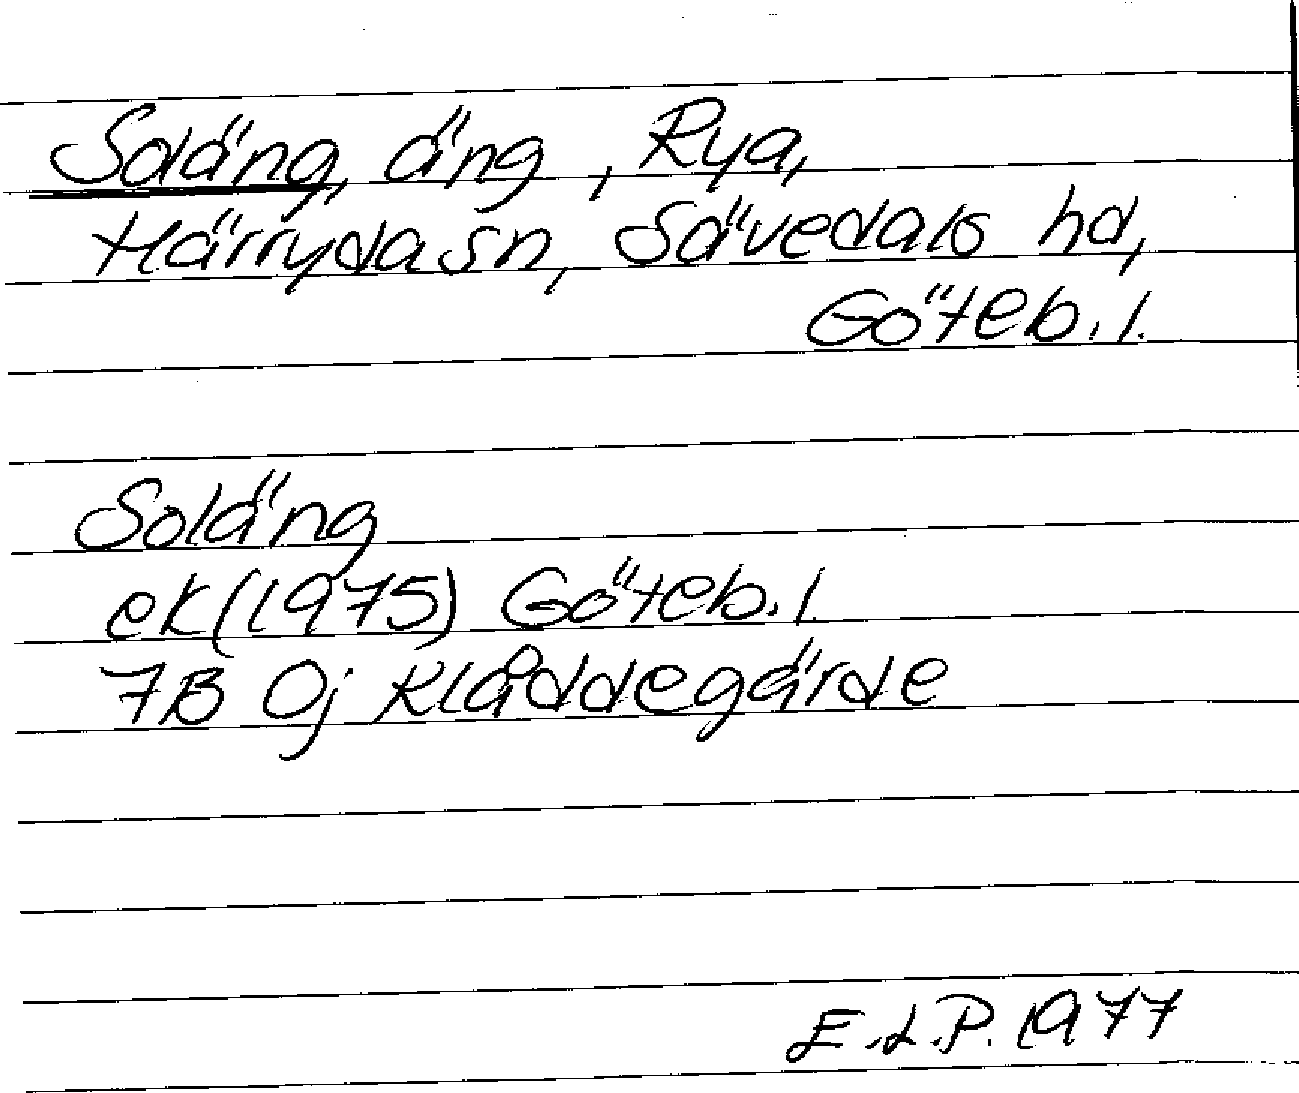 Soläng, äng, Rya,
Härryda sn, Sävedals hd,
Göteb. l.
Soläng
ek (1975) Göteb. l.
7B 0j Klåddegärde
E.L.P. 1977